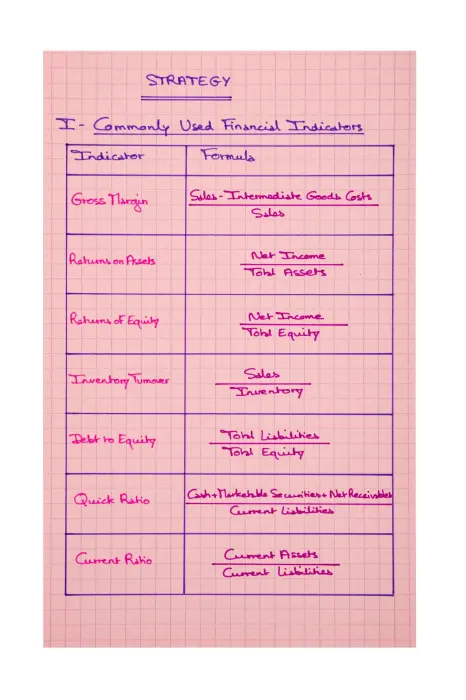 STRATEGY
I - Commonly Used Financial Indicators
Indicator Formula
Gross Margin Sales - Intermediate Goods Costs
Sales
Returns on Assets Net Income
Total Assets
Returns of Equity Net Income
Total Equity
Inventory Turnover Sales
Inventory
Debt to Equity Total Liabilities
Total Equity
Quick Ratio Cash + Marketable Securities + Net Receivables
Current Liabilities
Current Ratio Current Assets
Current Liabilities